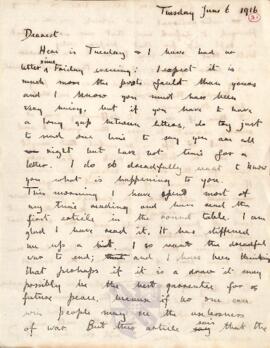 Tuesday June 6 1916
3
Dearest
Hear is Tuesday & I have had no
letter since Friday evening: I expect it is
much more the posts fault than yours
and I know you must have been
very busy, but if you have to have
a long gap between letters, do try just
to send one line to say you are all
right but have not time for a
letter. I do so dreadfully want to know
you what is happening to you.
This morning I have spent most of
my time reading and have read the
first article in the round table. I am
glad I have read it. It has stiffened
me up a bit. I so want the dreadful
war to end; and I have been thinking
that perhaps if it is a draw it may
possibly be the best guarantee for a
future peace, because if no one can
win people may see the uselessness
of war. But this article says that the